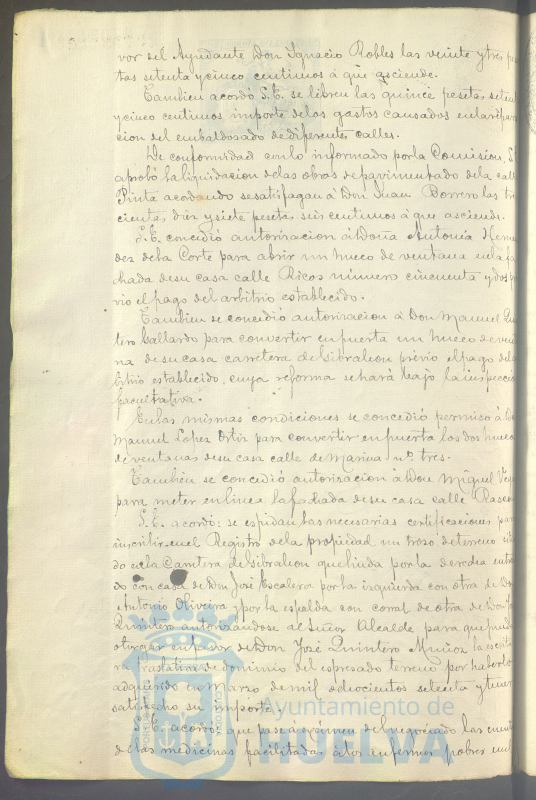 vor del Ayudante Don Ignacio Robles las veinte y tres pe
tas setenta y cinco centimos á que asciende.
Tambien acordó S.E. se libren las quince pesetas seten
y cinco centimos importe de los gastos causados en la repara
cion del embaldosado de diferentes calles.
De conformidad con lo informado por la Comision, S.
aprobó la liquidacion de las obras de pavimentado de la calle
Pinta acordando se satisfagan á Don Juan Borrero las tres
cientas diez y siete pesetas seis centimos á que asciende.
S.E. concedió autorizacion á Doña Antonia Hernan
dez de la Corte para abrir un hueco de ventana en la fa
chada de su casa calle Ricos número cincuenta y dos pre
vio el pago del arbitrio establecido.
Tambien se concedió autorizacion á Don Manuel Quin
tero Gallardo para convertir en puerta un hueco de venta
na de su casa carretera de Gibraleon previo el pago del ar
bitrio establecido, cuya reforma se hará bajo la inspeccion
facultativa.
En las mismas condiciones se concedió permiso á Don
Manuel Lopez Ortiz para convertir en puerta los dos huecos
de ventanas de su casa calle de Marina nº tres.
Tambien se concedió autorizacion á Don Miguel
para meter en linea la fachada de su casa calle Rascon
S.E. acordó: se espidan las necesarias certificaciones para
inscribir en el Registro de la propiedad un trozo de terreno
do en la Carretera de Gibraleon que linda por la derecha entran
do con casa de Don José Escalera por la izquierda con otra de Don
Antonio Oliveira y por la espalda con corral de otra de Don
Quintero autorizandose al Señor Alcalde para que pueda
otorgar en favor de Don José Quintero Muñoz la escritu
ra traslativa de dominio del espresado terreno por haberlo
adquirido en Marzo de mil ochocientos setenta y tener
satisfecho su importe.
S.E. acordó que pase á exámen del negociado las cuentas
de las medicinas facilitadas á los enfermos pobres en el
Ayuntamiento de
HUELVA